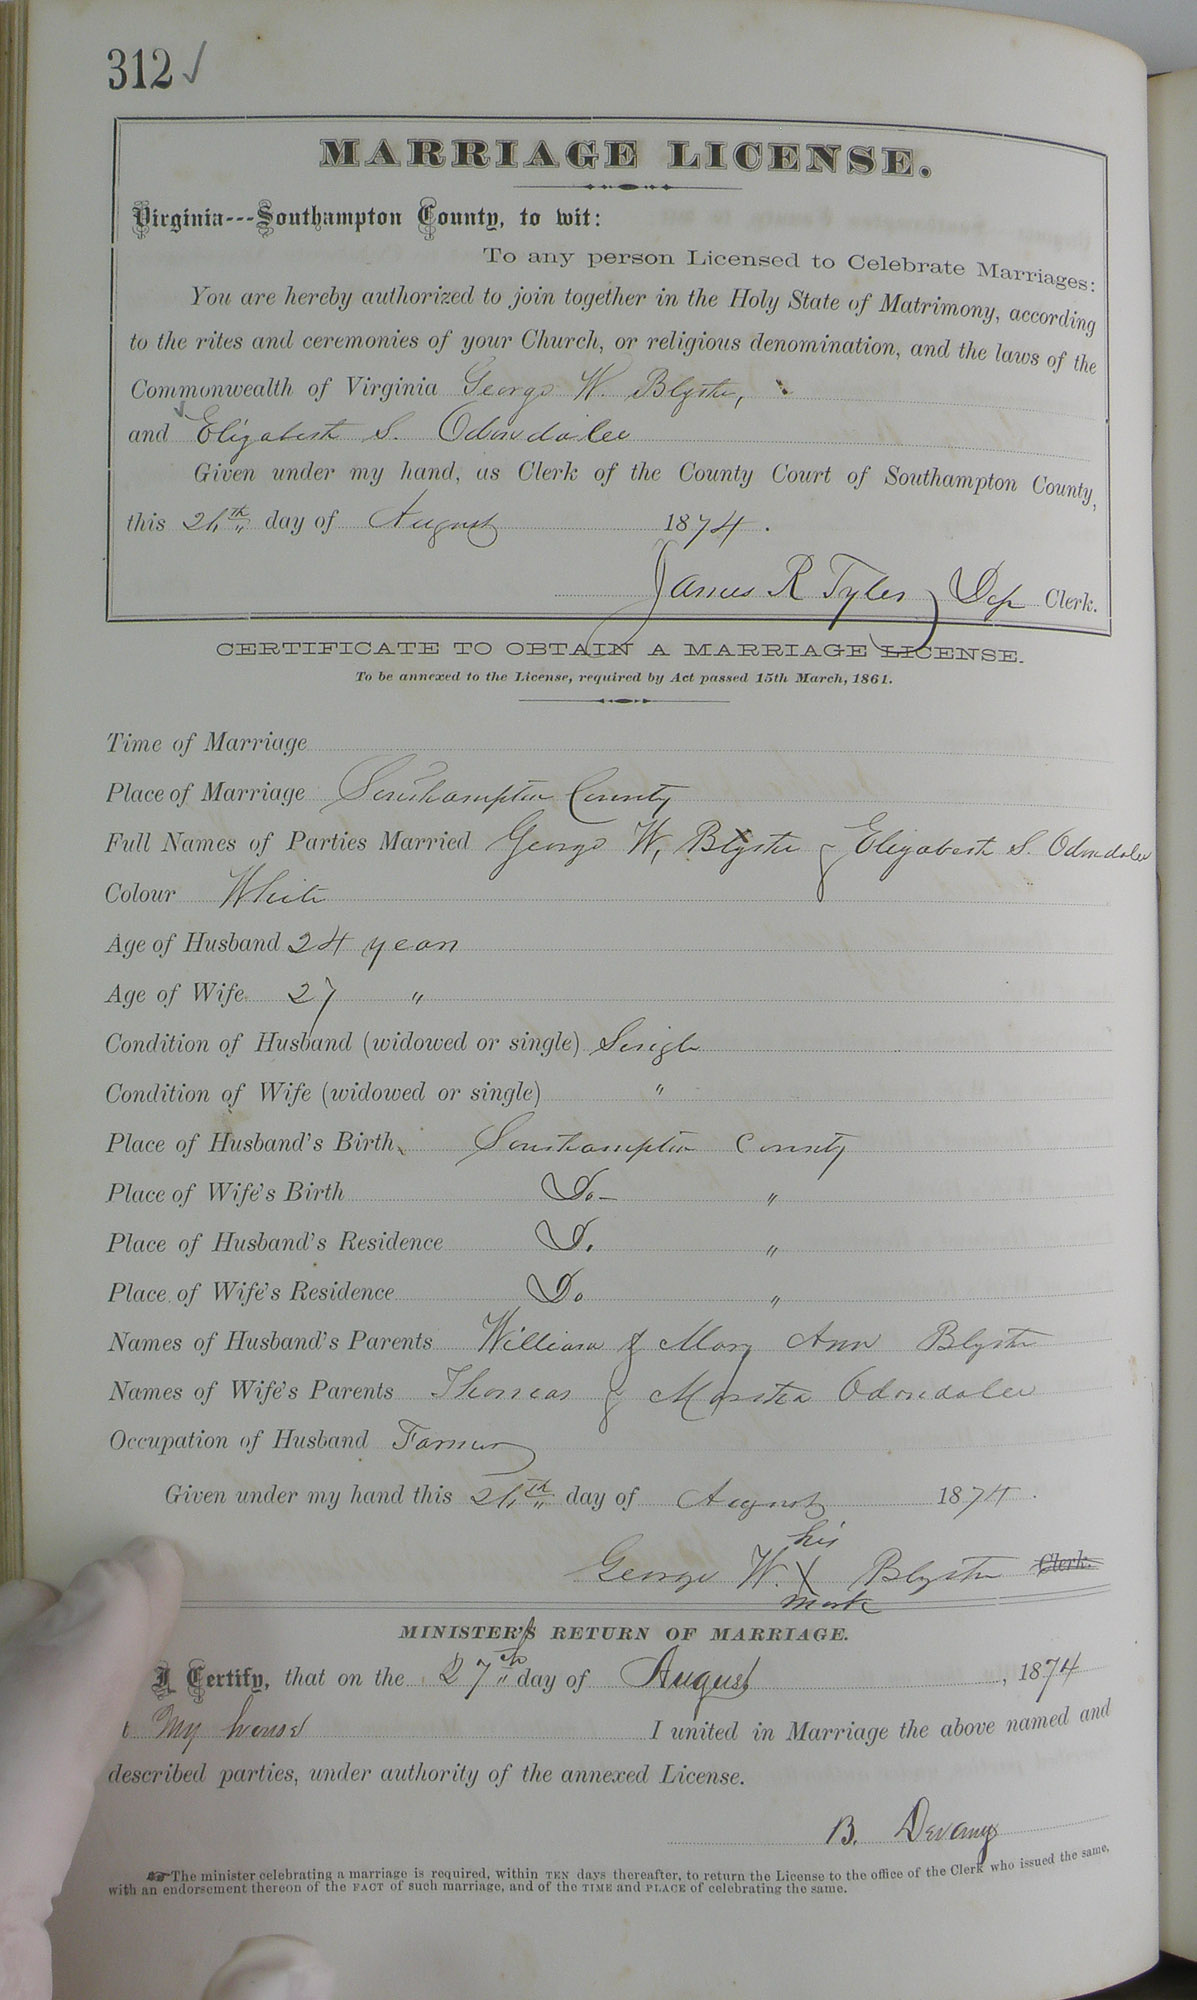 312 ✓
MARRIAGE LICENSE.
Virginia---Southampton County, to wit:
To any person Licensed to Celebrate Marriages:
You are hereby authorized to join together in the Holy State of Matrimony, according
to the rites and ceremonies of your Church, or religious denomination, and the laws of the
Commonwealth of Virginia George W. Blythe,
and Elizabeth S. Odondalee
Given under my hand, as Clerk of the County Court of Southampton County,
this 26th day of August 1874.
James R Tyler, Dep Clerk.
CERTIFICATE TO OBTAIN A MARRIAGE LICENSE.
To be annexed to the License, required by Act passed 15th March, 1861.
Time of Marriage
Place of Marriage Southampton County
Full Names of Parties Married George W. Blythe & Elizabeth S. Odondalee
Colour White
Age of Husband 24 years
Age of Wife 27 "
Condition of Husband (widowed or single) Single
Condition of Wife (widowed or single) "
Place of Husband's Birth Southampton County
Place of Wife's Birth Do "
Place of Husband's Residence Do "
Place of Wife's Residence Do "
Names of Husband's Parents William & Mary Ann Blythe
Names of Wife's Parents Thomas & Martha Odondalee
Occupation of Husband Farmer
Given under my hand this 26th day of August 1874.
his
George W. X Blythe Clerk.
mark
MINISTER'S RETURN OF MARRIAGE.
I Certify, that on the 27th day of August, 1874
My house I united in Marriage the above named and
described parties, under authority of the annexed License.
B. Devany
☞ The minister celebrating a marriage is required, within TEN days thereafter, to return the License to the office of the Clerk who issued the same,
with an endorsement thereon of the FACT of such marriage, and of the TIME and PLACE of celebrating the same.